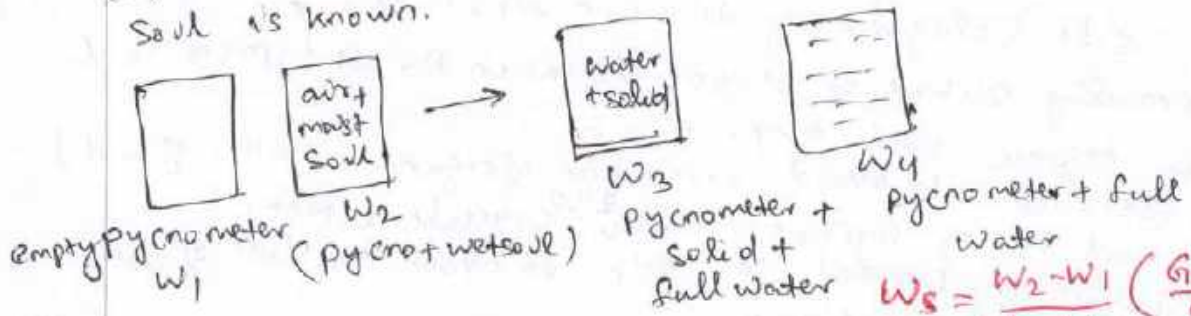 Soul is known.
air+
moist
Soul
water
+solid
empty pycnometer
W1
W2
(pycno+wetsoul)
W3
pycnometer +
solid +
full water
W4
pycnometer + full
water
Ws = W2-W1 (G